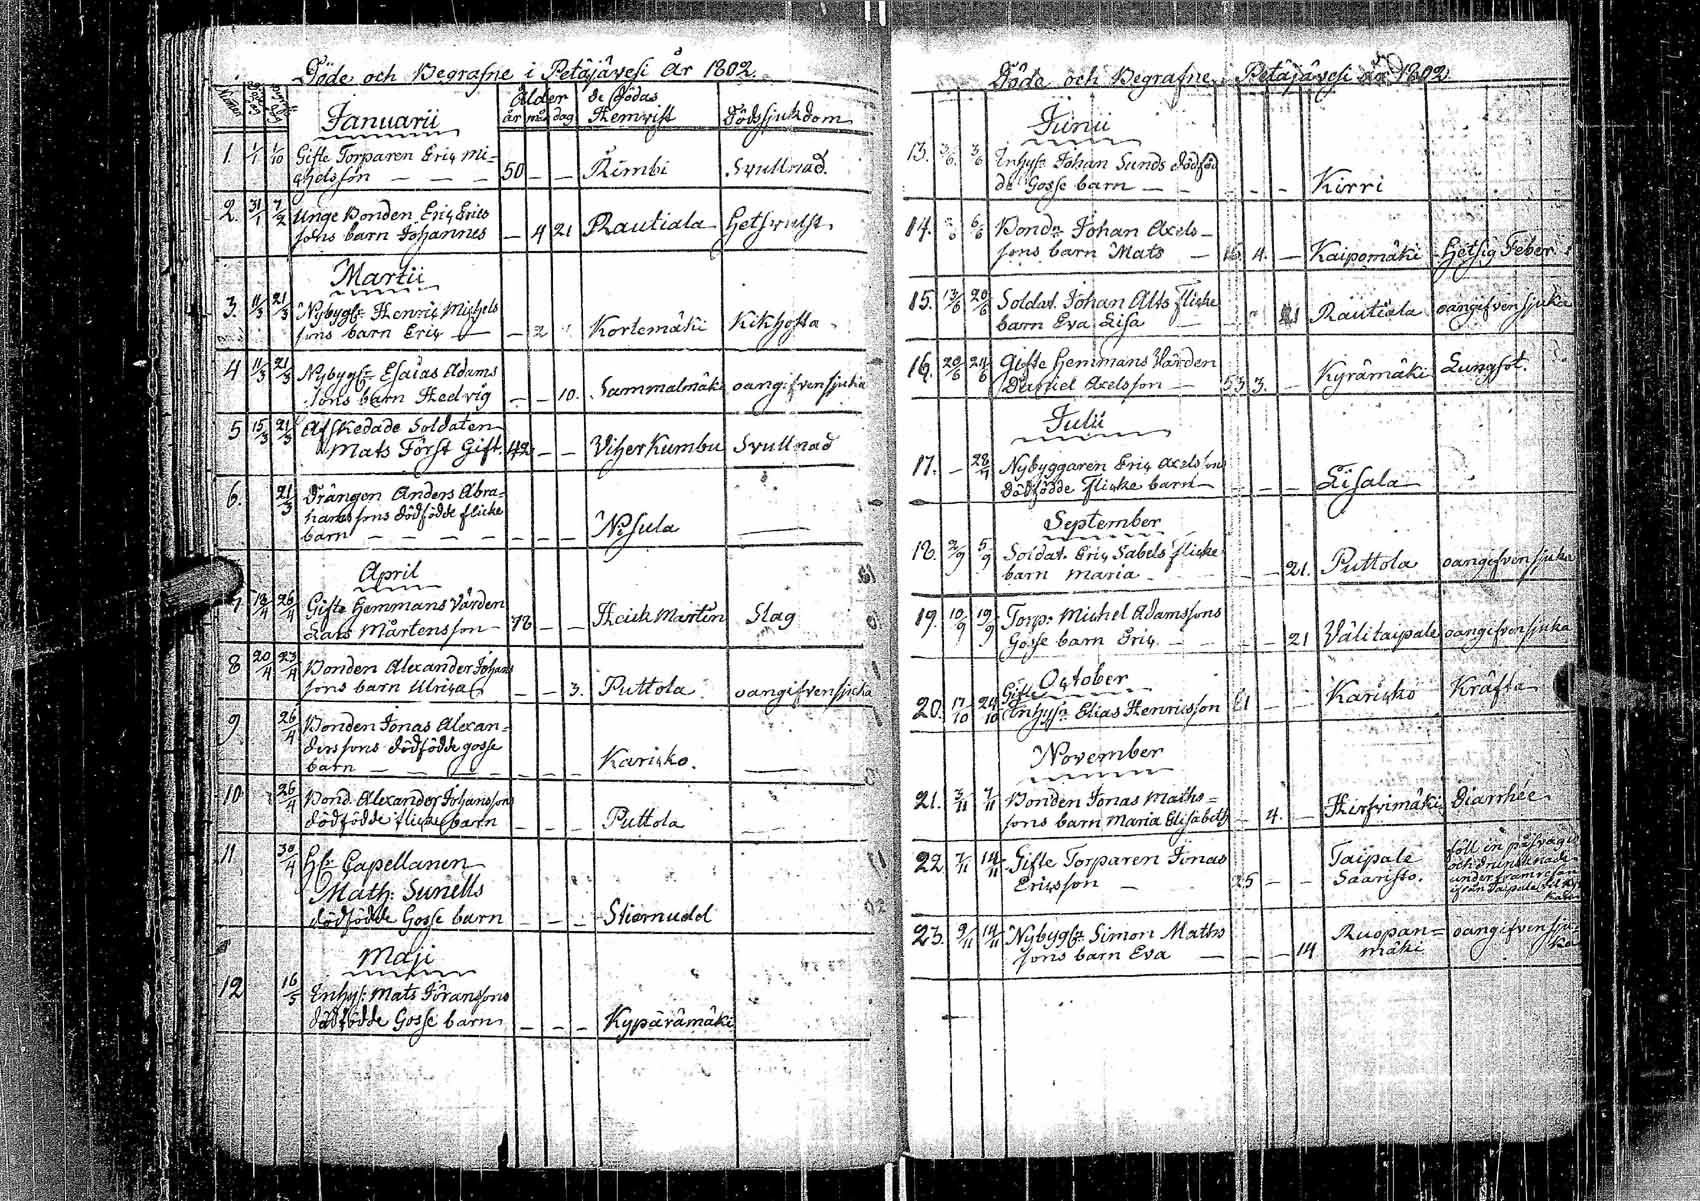 Döde och Begrafne i Petäjävesi År 1802.
Ålder
år må dag
de Dödas
Hemvist
Dödssjukdom
Januarii
1. 1/1 1/10 Gifte Torparen Eriç Mi=
chelsson — — — 50 — — Rimbi Svullnad.
2. 31/1 7/2 Unge Bonden Eriç Erics
sons barn Johannes — 4 21 Rautiala Hetsvulst
Martii
3. 11/3 21/3 Nybygg: Henriç Michels
sons barn Eriç — — 2 Kortemäki Kikhosta
4 11/3 21/3 Nybygg: Esaias Adams
sons barn Hedvig — — 10. Sammalmäki oangifven sjuka
5 15/3 21/3 Afskedade Soldaten
Mats Först Gift. 42 — — Viherkumbu Svullnad
6. 21/3 Drängen Anders Abra=
hamssons dödfödde flicke
barn — — — — — — — Nisula —
April
7 18/4 26/4 Gifte Hemmans Värden
Lars Mårtensson — 78 — — Heick Martin Slag
8 20/4 23/4 Bonden Alexander Johans
sons barn Ulrica — — 3. Puttola. oangifven sjuka
9 26/4 Bonden Jonas Alexan=
derssons dödfödde gosse
barn — — — — — Karicko. —
10 26/4 Bond. Alexander Johanssons
dödfödde flickebarn — — — Puttola —
11 30/4 Hr Capellanen
Math: Sunells
dödfödde Gosse barn — — — Stiernudd
Maji
12 16/5 Inhys: Mats Göranssons
dödfödde Gosse barn — — — Kypärämäki
Döde och Begrafne Petäjävesi År 1802
Junii
13. 3/6 3/6 Inhys: Johan Sunds dödföd
de Gosse barn — — — — Kirri
14. 6/6 Bondn Johan Axels—
sons barn Mats — 15 4. — Kaipomäki Hetsig Feber
15. 13/6 20/6 Soldat. Johan Alts flicke
barn Eva Lisa — 21 Rautiala oangifven sjuka
16. 20/6 24/6 Gifte Hemmans Värden
Daniel Axelsson — 53 3. — Kyrämäki Lungsot.
Julii
17. — 28/7 Nybyggaren Eriç Axelssons
dödfödde flicke barn — — — — Lisala
September
18. 2/9 5/9 Soldat. Eriç Sabels flicke
barn Maria — — — 21. Puttola oangifven sjuka
19. 10/9 19/9 Torp. Michel Adamssons
Gosse barn Eriç — — — 21 Välitaipale oangifven sjuka
October
20. 17/10 24/10 Gifte
Inhys: Elias Henricsson 61 — — Karicko Kräfta
November
21. 3/11 7/11 Bonden Jonas Maths=
sons barn Maria Elisabeth — 4. — Hirfvimäki Diarrhée
22 7/11 14/11 Gifte Torparen Jonas
Ericsson — 25 — — Taipale
Saaristo.
föll in på svag is
och drunknade
under framresan
ifrån Taipale
23. 9/11 14/11 Nybygg: Simon Maths
sons barn Eva — — — 14 Ruopan=
mäki oangifven sju
ka